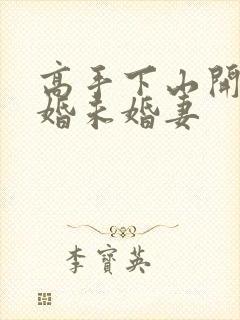 高手下山開
婚未婚妻
李寶英